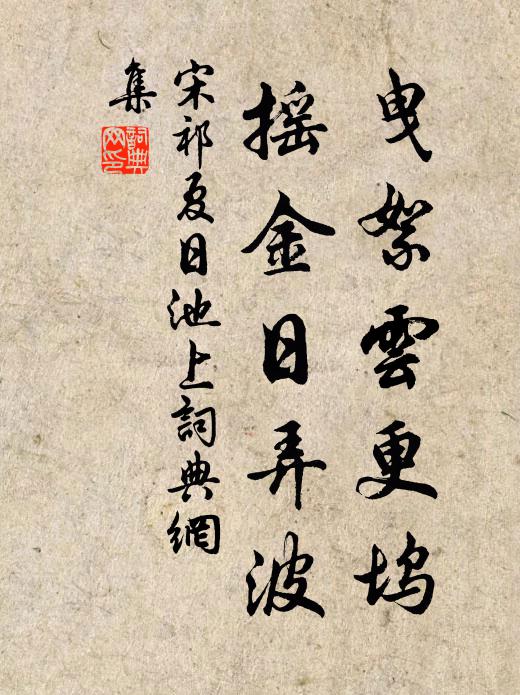 曳絮雲更塢
搖金日弄波
宋祁夏日池上詞典網
集
詞典
网印